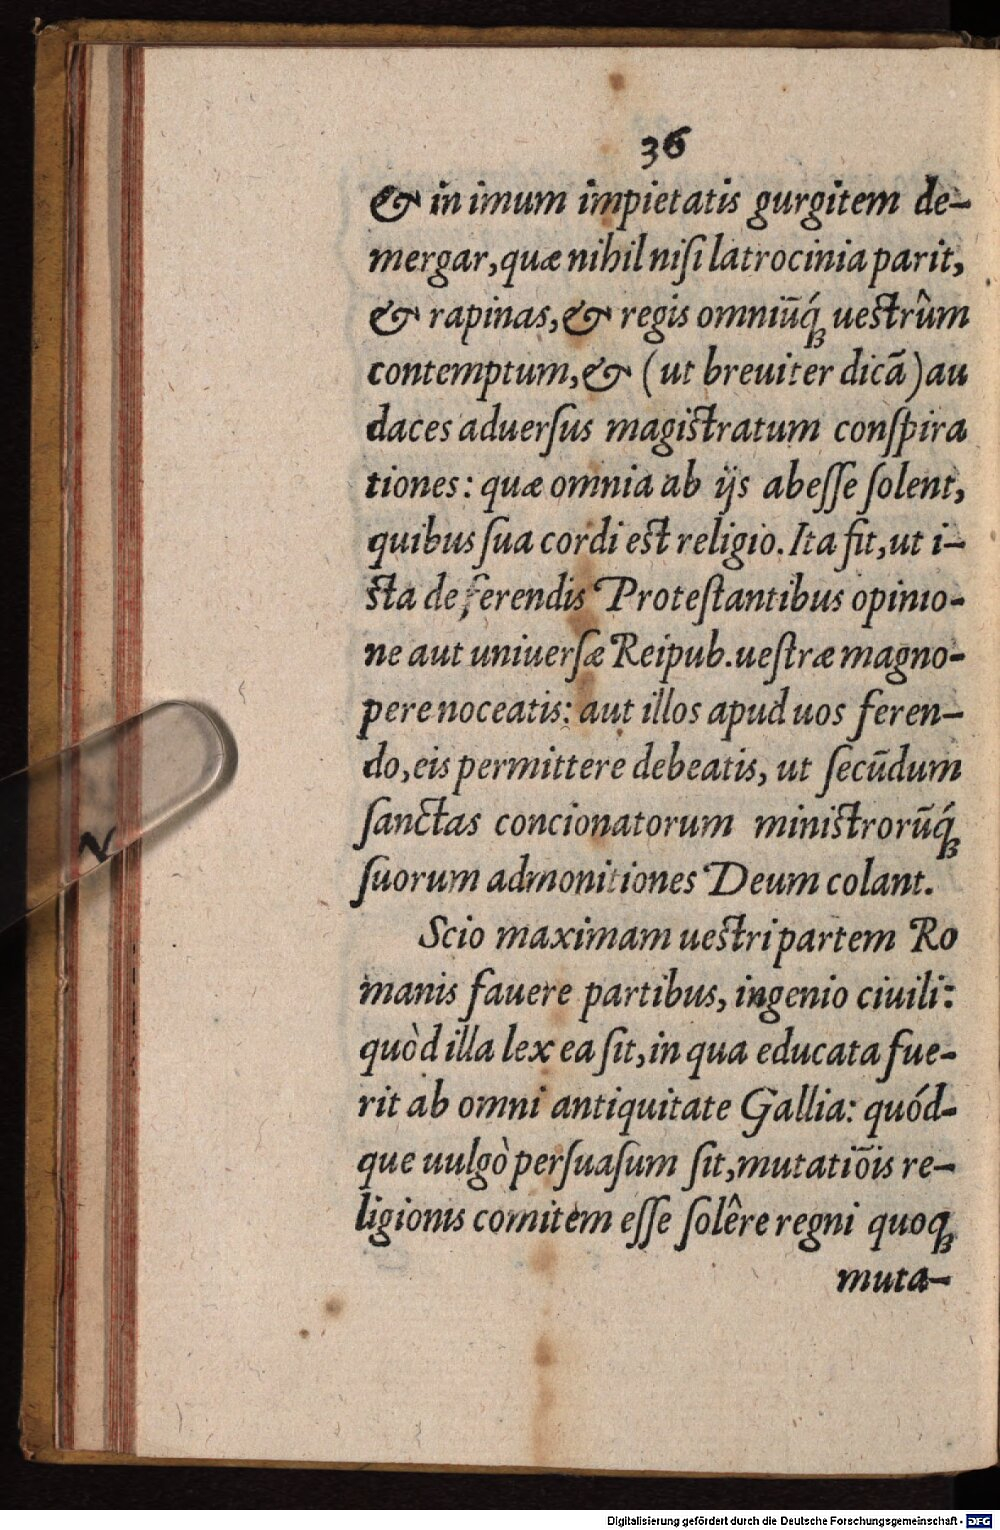 36
& in imum impietatis gurgitem de-
mergar, quæ nihil niſi latrocinia parit,
& rapinas, & regis omniūq́ꝫ ueſtrûm
contemptum, & (ut breuiter dicā) au
daces aduerſus magiſtratum conſpira
tiones: quæ omnia ab ijs abeſſe ſolent,
quibus ſua cordi eſt religio. Ita fit, ut i-
ſta de ferendis Proteſtantibus opinio-
ne aut uniuerſæ Reipub. ueſtræ magno-
pere noceatis: aut illos apud uos feren-
do, eis permittere debeatis, ut ſecūdum
ſanctas concionatorum miniſtrorūq́ꝫ
ſuorum admonitiones Deum colant.
Scio maximam ueſtri partem Ro
manis fauere partibus, ingenio ciuili:
quòd illa lex ea ſit, in qua educata fue-
rit ab omni antiquitate Gallia: quód-
que uulgò perſuaſum ſit, mutatiōis re-
ligionis comitem eſſe ſolêre regni quoqꝫ
muta-
N
Digitalisierung gefördert durch die Deutsche Forschungsgemeinschaft - DFG